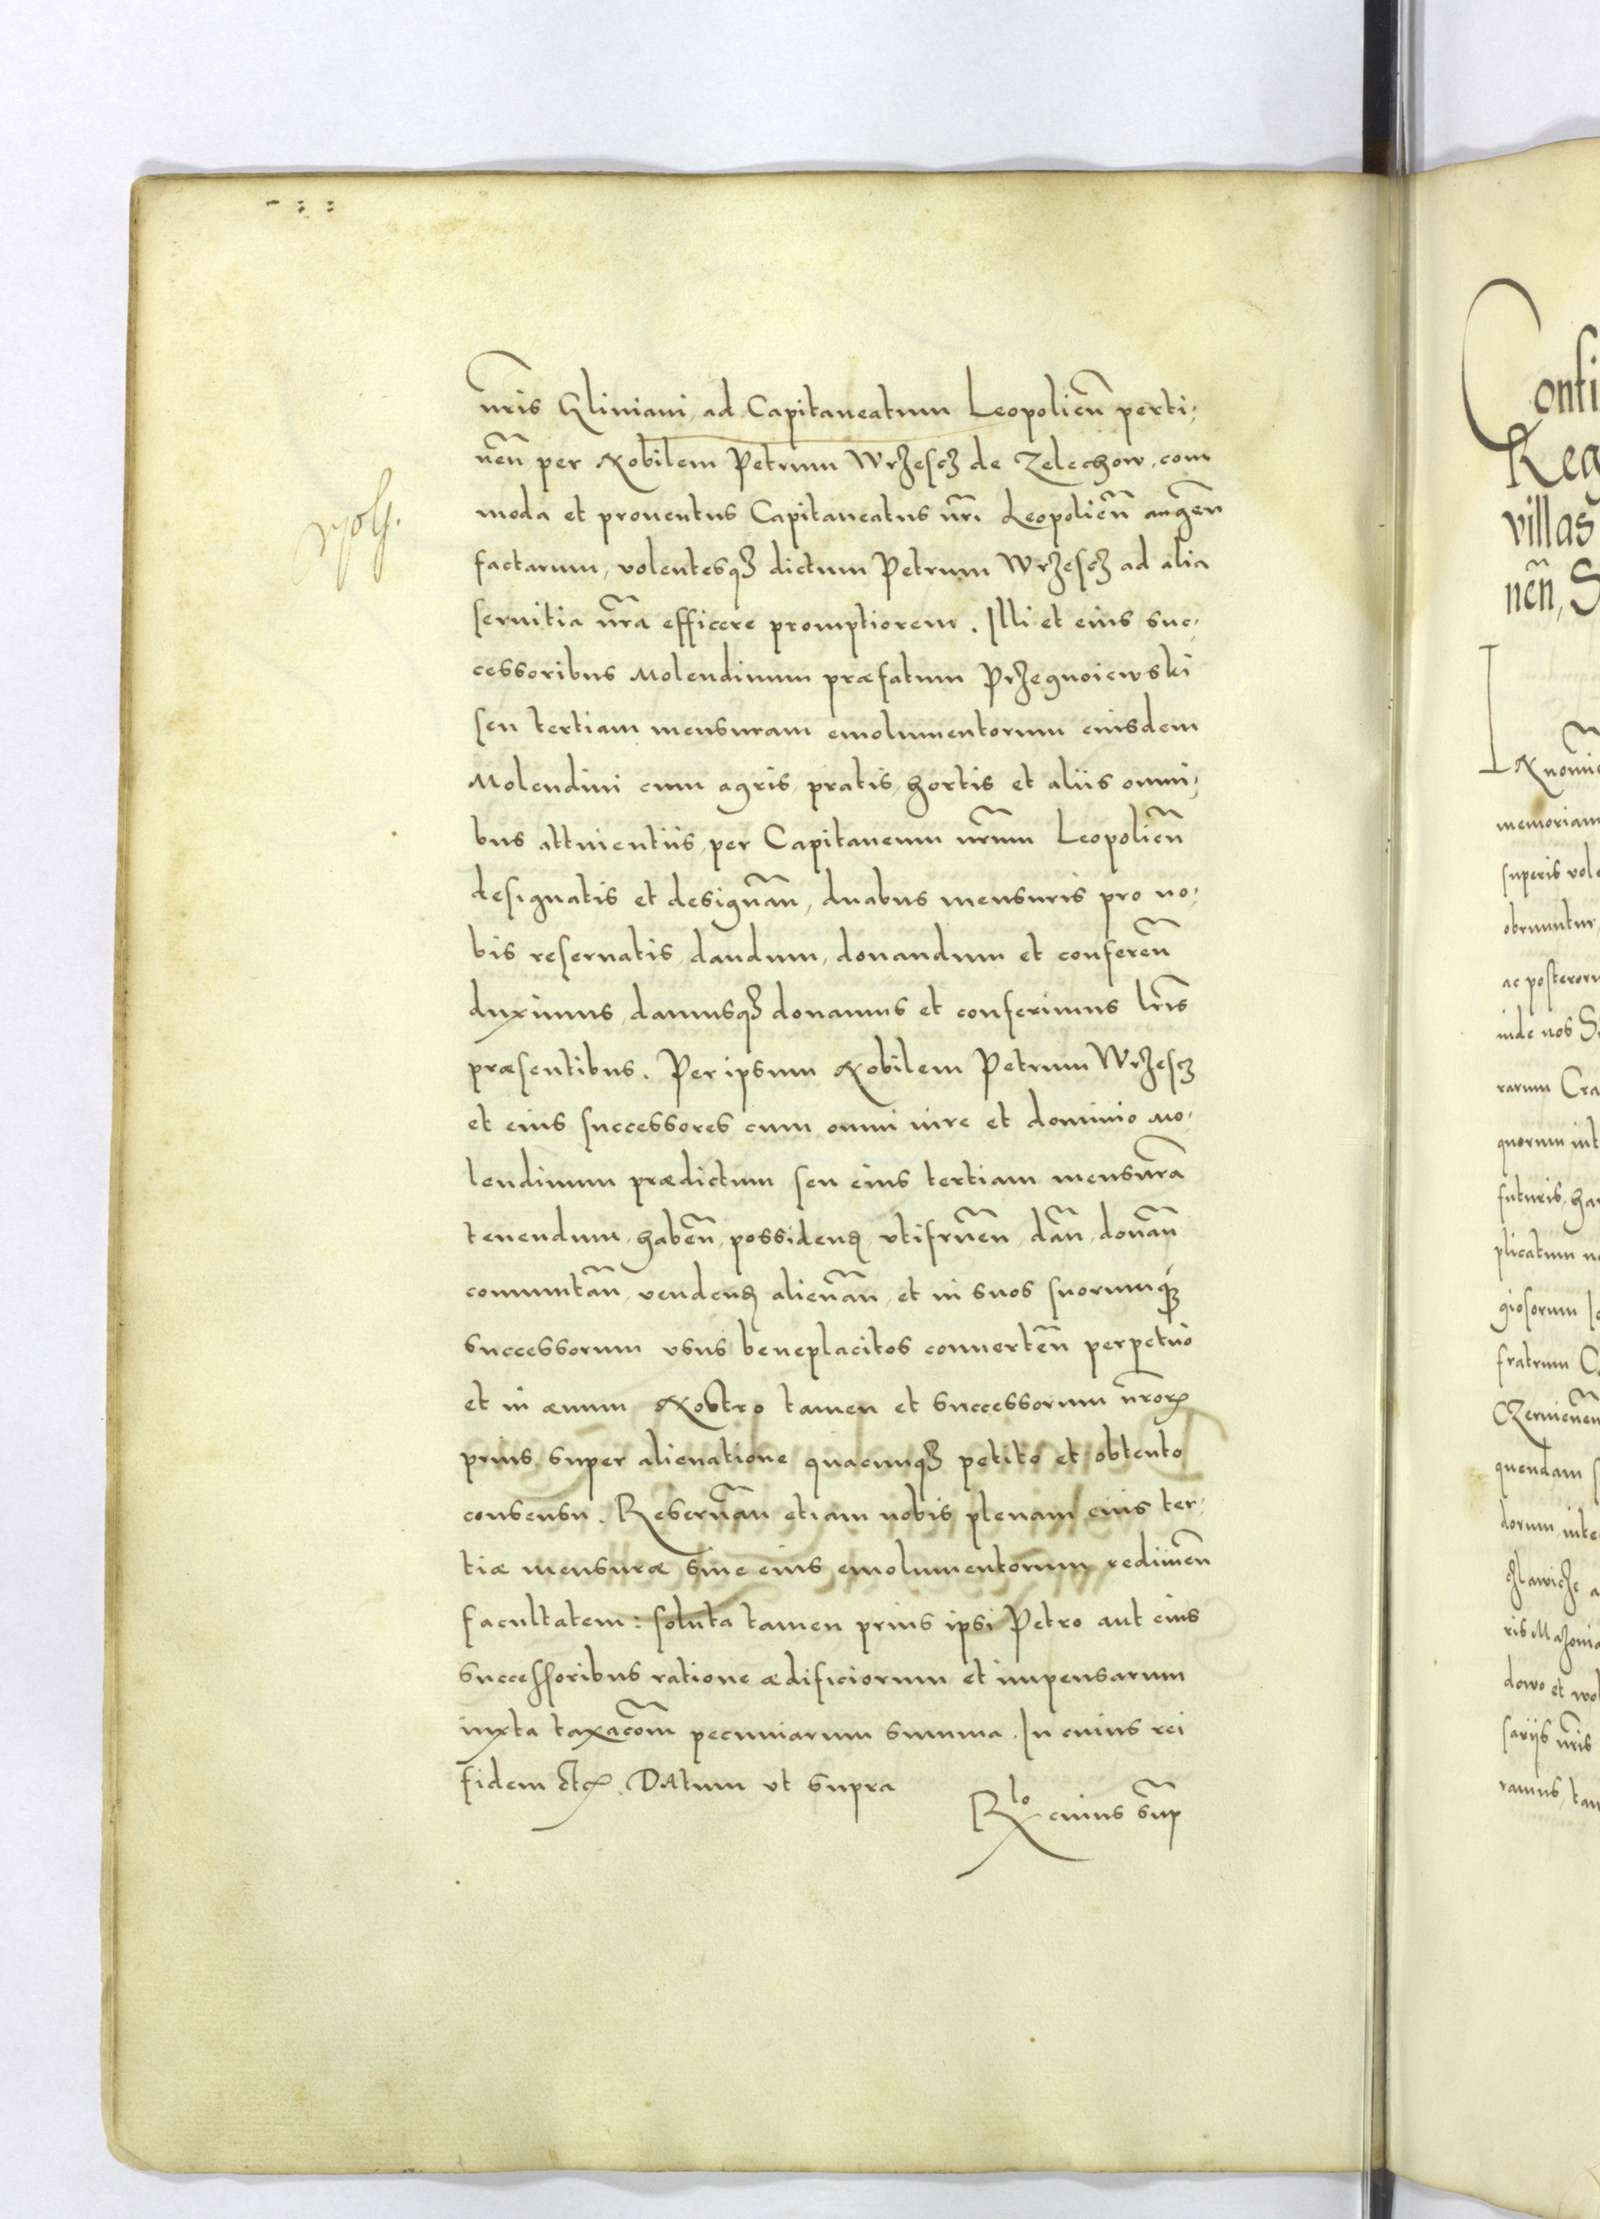 nr̃is Gliniani, ad Capitaneatum Leopolien̄ perti,
nen̄ per Nobilem Petrum Wrzescz de Zelechow, com
moda et prouentus Capitaneatus nr̄i Leopolien̄ augen
factarum, volentesqȝ dictum Petrum Wrzescz ad alia
seruitia nr̄a efficere promptiorem. Illi et eius suc,
cessoribus Molendinum præfatum Przegnoiewski
seu tertiam mensuram emolumentorum eiusdem
Molendini cum agris, pratis, hortis et aliis omni,
bus attinentiis, per Capitaneum nr̄um Leopolien̄
designatis et designan̄, duabus mensuris pro no,
bis reseruatis, dandum, donandum et conferen̄
duximus, damusqȝ donamus et conferimus lr̄is
præsentibus. Per ipsum Nobilem Petrum Wrzescz
et eius successores cum omni iure et dominio Mo,
lendinum prædictum seu eius tertiam mensur̄a
tenendum, haben̄, possidenꝗ, vtifruen̄, dan̄, donan̄
commutan̄, vendenꝗ alienan̄, et in suos suorumqȝ
successorum vsus beneplacitos conuerten̄ perpetuo
et in æuum Nostro tamen et successorum nr̄oꝝ
prius super alienatione quacunqȝ petito et obtento
consensu. Reseruan̄ etiam nobis plenam eius ter,
tiæ mensuræ siue eius emolumentorum redimen̄
facultatem: soluta tamen prius ipsi Petro aut eius
successoribus ratione ædificiorum et impensarum
iuxta taxacōm pecuniarum summa. In cuius rei
fidem etc. Datum vt supra
Rlo cuius sup̄
Confi
Reg
villas
nen̄, S
memoriam
superis vole
obruuntur,
ac posteroru
inde nos S
rarum Cra
quorum int
futuris, ha
plicatum n
giosorum
fratrum C
quendam
dorum, inte
dowo et wo
sariis nr̄is
ramus, tam